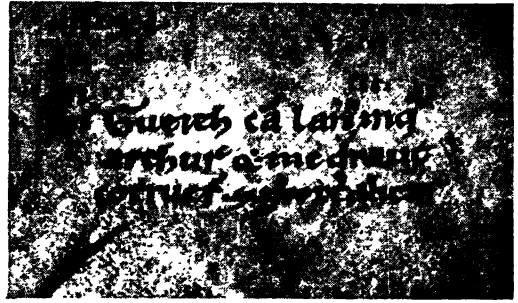 Gueith cā lann inq
arthur & medraut
corruer̄